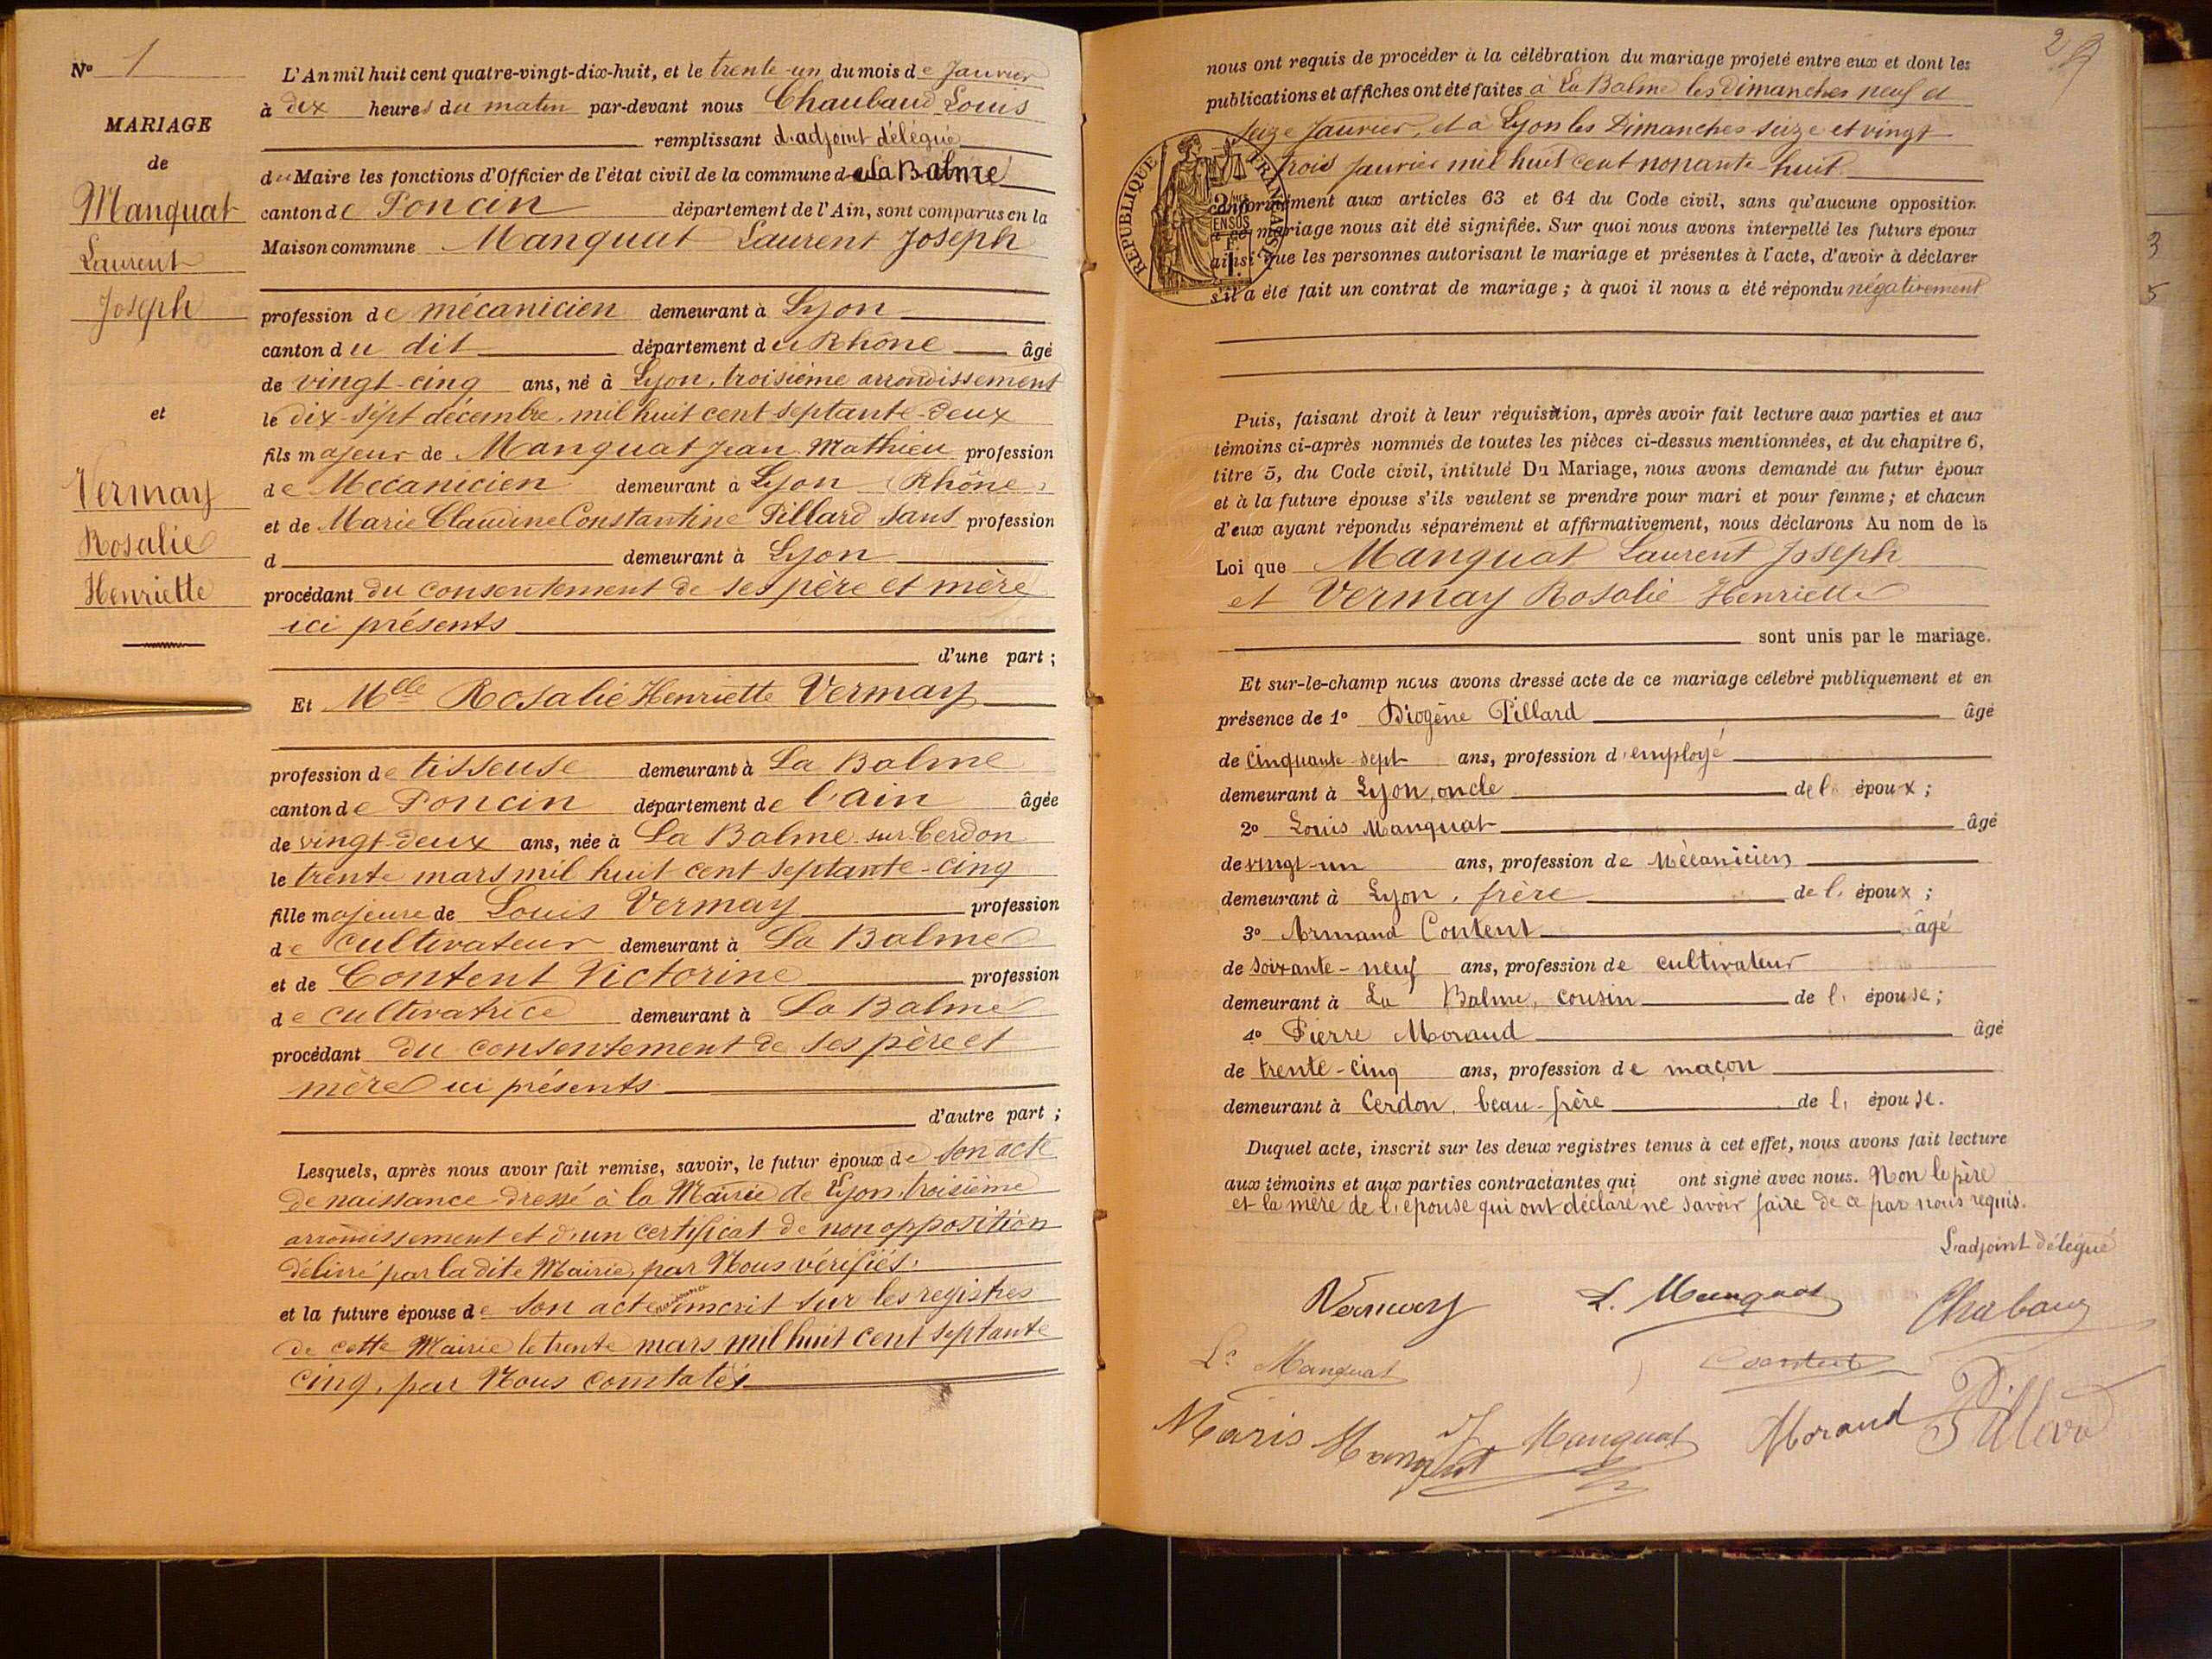 No 1
MARIAGE
de
Manquat
Laurent
Joseph
et
Vermay
Rosalie
Henriette
L'An mil huit cent quatre-vingt-dix-huit, et le trente-un du mois de Janvier
à dix heures du matin par-devant nous Chaubaud Louis
remplissant d'adjoint délégué
du Maire les fonctions d'Officier de l'état civil de la commune de La Balme
canton de Poncin département de l'Ain, sont comparus en la
Maison commune Manquat Laurent Joseph
profession de mécanicien demeurant à Lyon
canton du dit département du Rhône âgé
de vingt-cinq ans, né à Lyon, troisième arrondissement
le dix-sept décembre, mil huit cent septante-deux
fils majeur de Manquat Jean Mathieu profession
de Mécanicien demeurant à Lyon (Rhône)
et de Marie Claudine Constantine Pillard sans profession
d demeurant à Lyon
procédant du consentement de ses père et mère
ici présents
d'une part ;
Et Mlle Rosalie Henriette Vermay
profession de tisseuse demeurant à La Balme
canton de Poncin département de l'Ain âgée
de vingt-deux ans, née à La Balme sur Cerdon
le trente mars mil huit cent septante-cinq
fille majeure de Louis Vermay profession
de cultivateur demeurant à La Balme
et de Content Victorine profession
de cultivatrice demeurant à La Balme
procédant du consentement de ses père et
mère ici présents
d'autre part ;
Lesquels, après nous avoir fait remise, savoir, le futur époux de son acte
de naissance dressé à la Mairie de Lyon, troisième
arrondissement et d'un certificat de non opposition
délivré par la dite Mairie, par Nous vérifiés,
et la future épouse de son acte naissance inscrit sur les registres
de cette Mairie le trente mars mil huit cent septante
cinq, par Nous constatés
2
nous ont requis de procéder à la célébration du mariage projeté entre eux et dont les
publications et affiches ont été faites à La Balme les dimanches neuf et
seize Janvier, et à Lyon les Dimanches seize et vingt
trois Janvier mil huit cent nonante-huit
RÉPUBLIQUE FRANÇAISE
conformément aux articles 63 et 64 du Code civil, sans qu'aucune opposition
à ce mariage nous ait été signifiée. Sur quoi nous avons interpellé les futurs époux
ainsi que les personnes autorisant le mariage et présentes à l'acte, d'avoir à déclarer
s'il a été fait un contrat de mariage ; à quoi il nous a été répondu négativement
Puis, faisant droit à leur réquisition, après avoir fait lecture aux parties et aux
témoins ci-après nommés de toutes les pièces ci-dessus mentionnées, et du chapitre 6,
titre 5, du Code civil, intitulé Du Mariage, nous avons demandé au futur époux
et à la future épouse s'ils veulent se prendre pour mari et pour femme ; et chacun
d'eux ayant répondu séparément et affirmativement, nous déclarons Au nom de la
Loi que Manquat Laurent Joseph
et Vermay Rosalie Henriette
sont unis par le mariage.
Et sur-le-champ nous avons dressé acte de ce mariage célébré publiquement et en
présence de 1o Diogène Pillard âgé
de cinquante-sept ans, profession d'employé
demeurant à Lyon, oncle de l' époux ;
2o Louis Manquat âgé
de vingt-un ans, profession de Mécanicien
demeurant à Lyon, frère de l' époux ;
3o Armand Content âgé
de soixante-neuf ans, profession de cultivateur
demeurant à La Balme, cousin de l' épouse ;
4o Pierre Moraud âgé
de trente-cinq ans, profession de maçon
demeurant à Cerdon, beau-frère de l' épouse.
Duquel acte, inscrit sur les deux registres tenus à cet effet, nous avons fait lecture
aux témoins et aux parties contractantes qui ont signé avec nous. Non le père
et la mère de l'épouse qui ont déclaré ne savoir faire de ce par nous requis.
L'adjoint délégué
Vermay L. Manquat Chabaud
Ls Manquat Content
Maris Manquat Manquat Moraud Pillard
3
5